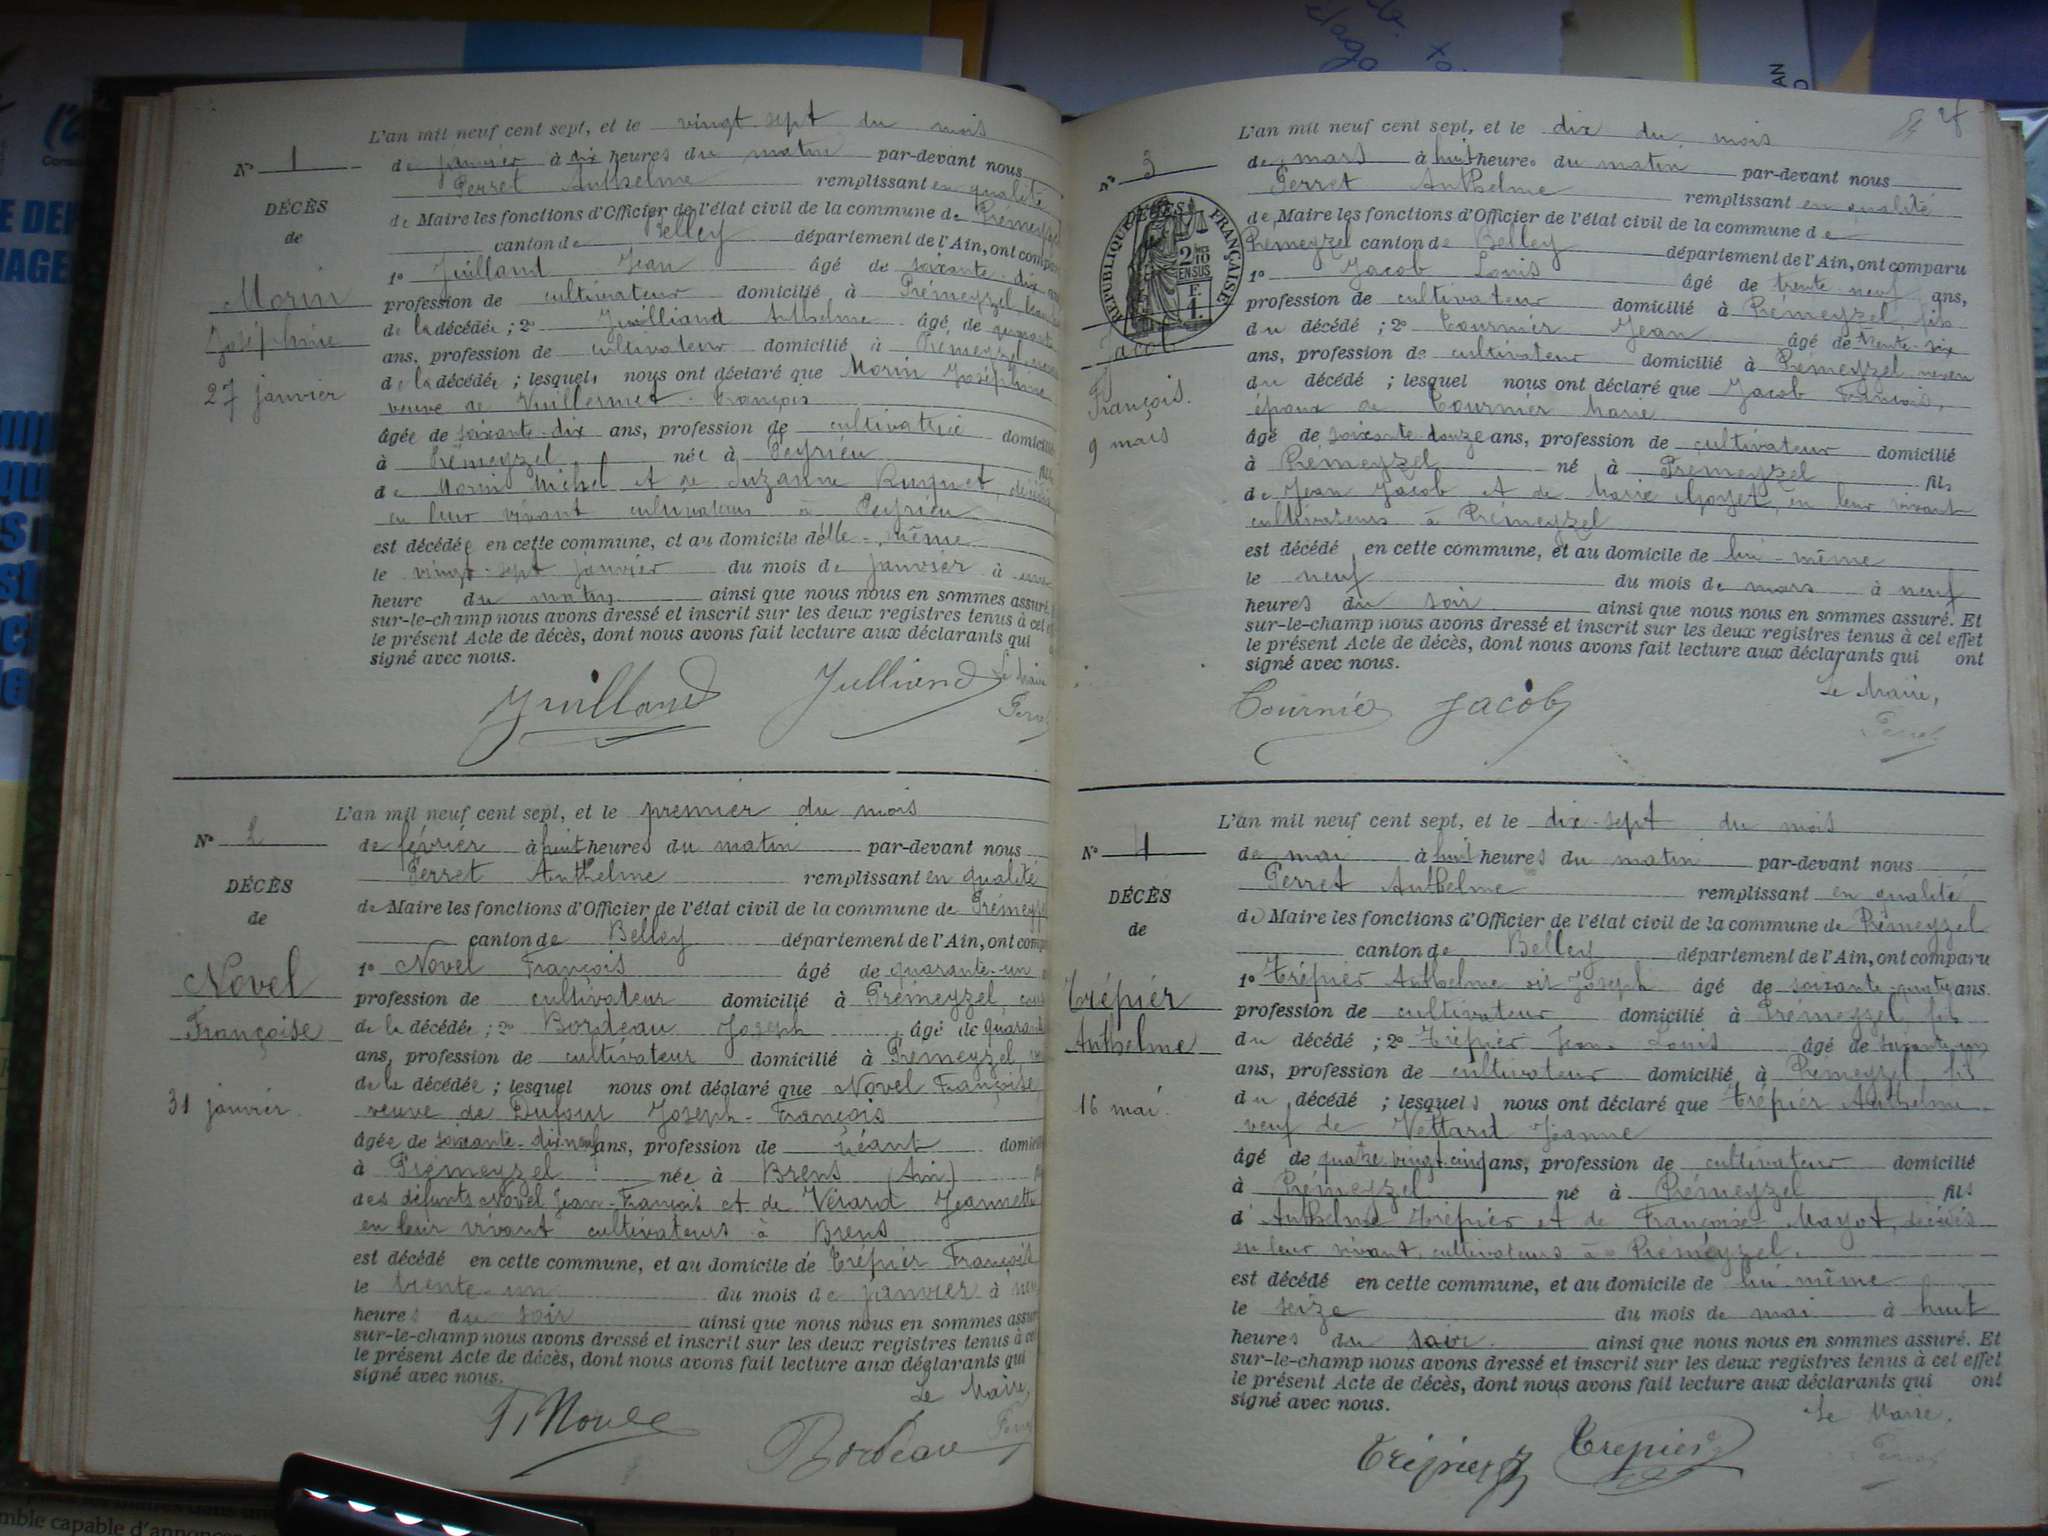 L'an mil neuf cent sept, et le vingt-sept du mois
N° 1
de janvier à dix heures du matin par-devant nous
Perret Anthelme remplissant en qualité
DÉCÈS
de Maire les fonctions d'Officier de l'état civil de la commune de Prémeyzel
de
canton de Belley département de l'Ain, ont comparu
1° Juilland Jean âgé de soixante-dix ans
Morin
profession de cultivateur domicilié à Prémeyzel
Joséphine
de la décédée ; 2° Juilliand Anthelme âgé de quarante
ans, profession de cultivateur domicilié à Prémeyzel
27 janvier
de la décédée ; lesquels nous ont déclaré que Morin Joséphine
veuve de Vuillermet François
âgée de soixante-dix ans, profession de cultivatrice domicilié
à Prémeyzel née à Peyrieu
de Morin Michel et de Suzanne
en leur vivant cultivateurs à Peyrieu
est décédée en cette commune, et au domicile d'elle-même
le vingt-sept janvier du mois de janvier à une
heure du matin ainsi que nous nous en sommes assuré.
sur-le-champ nous avons dressé et inscrit sur les deux registres tenus à cet
le présent Acte de décès, dont nous avons fait lecture aux déclarants qui
signé avec nous.
Juilland Julliand Le Maire
Perret
L'an mil neuf cent sept, et le premier du mois
N° 2
de février à huit heures du matin par-devant nous
Perret Anthelme remplissant en qualité
DÉCÈS
de Maire les fonctions d'Officier de l'état civil de la commune de Prémeyzel
de
canton de Belley département de l'Ain, ont comp
1° Novel François âgé de quarante-un
Novel
profession de cultivateur domicilié à Prémeyzel
Françoise
de la décédée ; 2° Bordeau Joseph âgé de quarante
ans, profession de cultivateur domicilié à Prémeyzel
de la décédée ; lesquel nous ont déclaré que Novel Françoise
31 janvier
veuve de Dufour Joseph-François
âgée de soixante-dix neuf ans, profession de néant domicilié
à Prémeyzel née à Brens (Ain)
des défunts Novel Jean-François et de Vérard Jeannette
en leur vivant cultivateurs à Brens
est décédé en cette commune, et au domicile de Trépier François
le trente-un du mois de janvier à
heures du soir ainsi que nous nous en sommes assuré
sur-le-champ nous avons dressé et inscrit sur les deux registres tenus à cet
le présent Acte de décès, dont nous avons fait lecture aux déclarants qui
signé avec nous.
Le Maire,
F. Novel Bordeau Perret
28
L'an mil neuf cent sept, et le dix du mois
N° 3
de mars à huit heures du matin par-devant nous
Perret Anthelme remplissant en qualité
de Maire les fonctions d'Officier de l'état civil de la commune de
DÉCÈS
RÉPUBLIQUE FRANÇAISE
2/10 EN SUS
F.
1.
Prémeyzel canton de Belley département de l'Ain, ont comparu
1° Jacob Louis âgé de trente-neuf ans,
profession de cultivateur domicilié à Prémeyzel, fils
du décédé ; 2° Tournier Jean âgé de trente-six
Jacob
ans, profession de cultivateur domicilié à Prémeyzel neveu
François.
du décédé ; lesquel nous ont déclaré que Jacob François,
époux de Tournier Marie
9 mars
âgé de soixante douze ans, profession de cultivateur domicilié
à Prémeyzel né à Prémeyzel fils
de Jean Jacob et de Marie Goyet, en leur vivant
cultivateurs à Prémeyzel
est décédé en cette commune, et au domicile de lui-même
le neuf du mois de mars à neuf
heures du soir ainsi que nous nous en sommes assuré. Et
sur-le-champ nous avons dressé et inscrit sur les deux registres tenus à cet effet
le présent Acte de décès, dont nous avons fait lecture aux déclarants qui ont
signé avec nous.
Le Maire,
Tournier Jacob
Perret
L'an mil neuf cent sept, et le dix-sept du mois
N° 4
de mai à huit heures du matin par-devant nous
Perret Anthelme remplissant en qualité
DÉCÈS
de Maire les fonctions d'Officier de l'état civil de la commune de Prémeyzel
de
canton de Belley département de l'Ain, ont comparu
1° Trépier Anthelme dit Joseph âgé de soixante-quatre ans.
Trépier
profession de cultivateur domicilié à Prémeyzel, fils
Anthelme
du décédé ; 2° Trépier Jean-Louis âgé de soixante un
ans, profession de cultivateur domicilié à Prémeyzel, fils
16 mai
du décédé ; lesquels nous ont déclaré que Trépier Anthelme
veuf de Vettard Jeanne
âgé de quatre vingt cinq ans, profession de cultivateur domicilié
à Prémeyzel né à Prémeyzel fils
d' Anthelme Trépier et de Françoise Mayot, décédés
en leur vivant, cultivateurs à Prémeyzel.
est décédé en cette commune, et au domicile de lui-même
le seize du mois de mai à huit
heures du soir. ainsi que nous nous en sommes assuré. Et
sur-le-champ nous avons dressé et inscrit sur les deux registres tenus à cet effet
le présent Acte de décès, dont nous avons fait lecture aux déclarants qui ont
signé avec nous.
Le Maire,
Trépier Trepier Perret
mble capable d'annonce